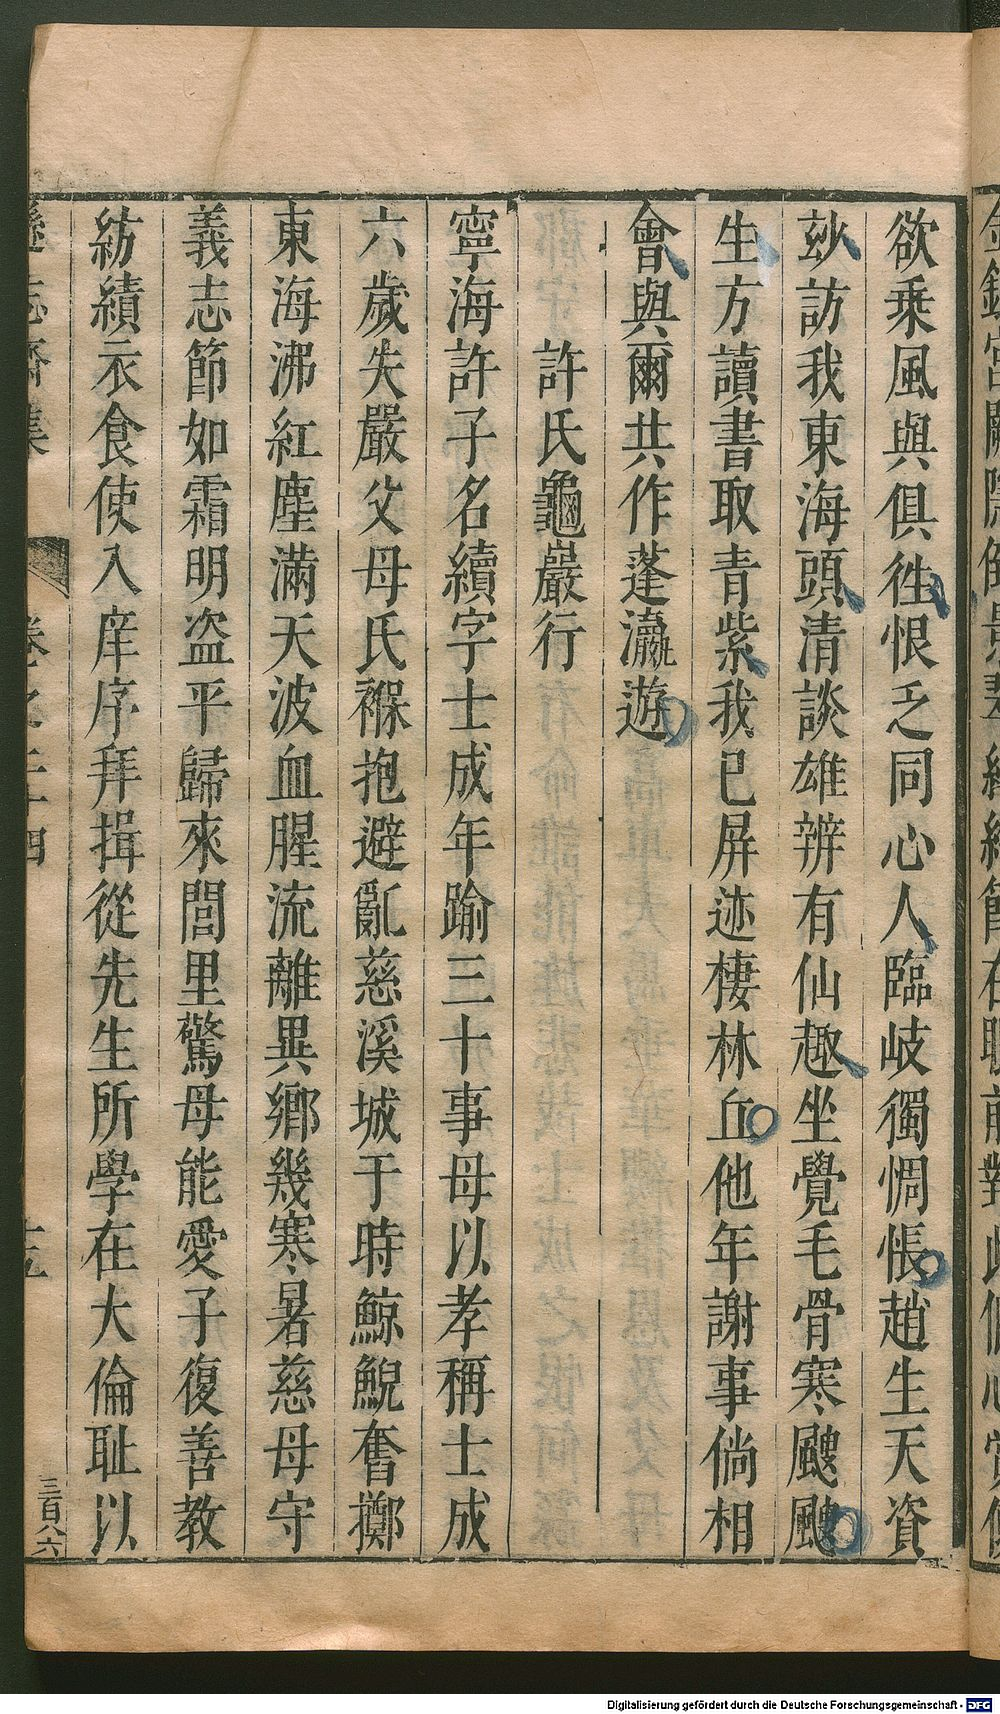 欲乘風與俱徃恨乏同心人臨岐獨惆悵趙生天資
玅訪我東海頭清談雄辨有仙趣坐覺毛骨寒颼颼
生方讀書取青紫我已屏迹棲林丘他年謝事倘相
會與爾共作蓬瀛遊
許氏龜巖行
寧海許子名續字士成年踰三十事母以孝稱士成
六歲失嚴父母氏褓抱避亂慈溪城于時鯨鯢奮擲
東海沸紅塵滿天波血腥流離異鄉幾寒暑慈母守
義志節如霜明盗平歸來閭里驚母能愛子復善教
紡績衣食使入庠序拜揖從先生所學在大倫耻以
遜志齋集 卷之二十四 十五 三百八六
Digitalisierung gefördert durch die Deutsche Forschungsgemeinschaft - DFG